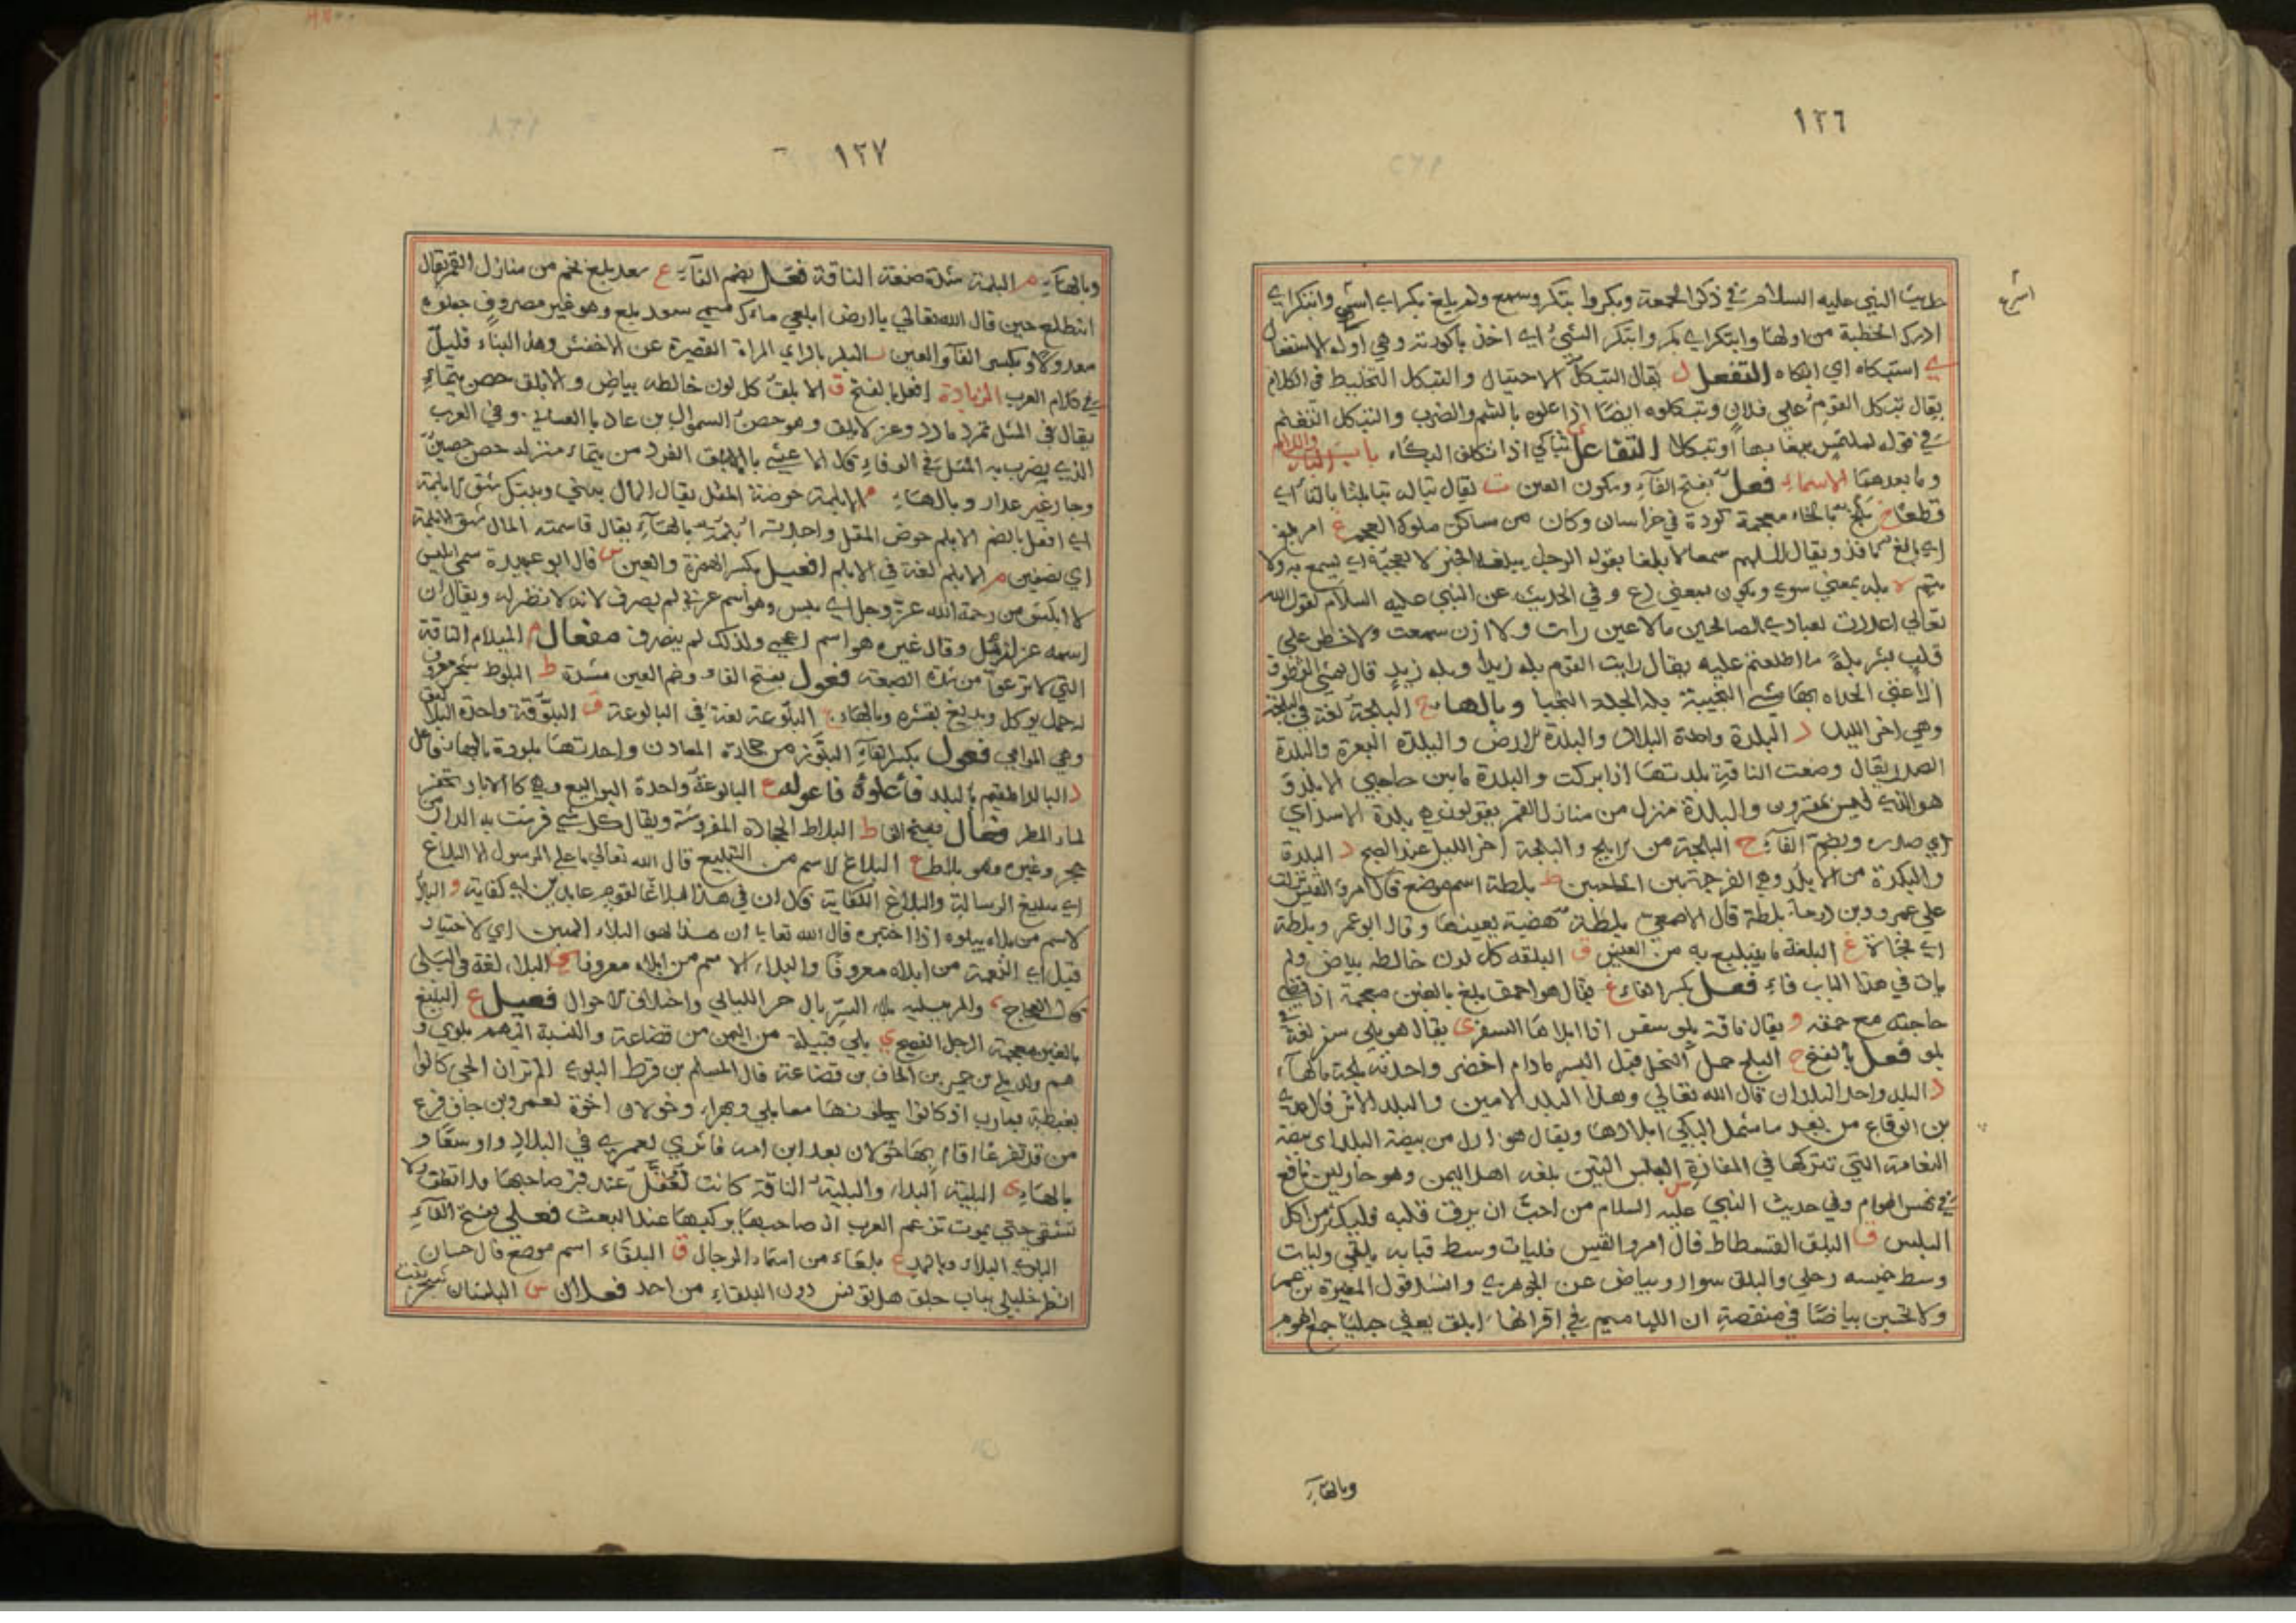 ١٢٦
اسرع
حديث النبي عليه السلام في ذكر الجمعة وبكروا بتكر وسمع ولم يلغ بكر اي اسرع وابتكر اي
ادرك الخطبة من اولها وابتكر اي بكر وابتكر الشيئ اي اخذ باكورته وهي اوله الاستفعال
ي استبكاه اي ابكاه التفعل ل يقال التبكل الاحتيال والتبكل التخليط في الكلام
يقال تبكل القوم على فلان وتبكلوه ايضًا اذا علوه بالشتم والضرب والتبكل التغنم
في قوله بها او تبكلا التفاعل ي تباكى اذا تكلف البكاء باب الباء واللام
وما بعدهما الاسماء فعل بفتح الفاء وسكون العين ت يقال تباله تبا بلتا بالتاء اي
قطعًا خ بلخ بالخاء معجمة كورة في خراسان وكان من مساكن ملوك العجم غ امر بلغ
اي بالغ نافذ ويقال اللهم سمعا لا بلغا يقوله الرجل يبلغه الخبر لا يعجبه اي يسمع به ولا
يتم ه بله بمعنى سوى ويكون بمعنى دع وفي الحديث عن النبي عليه السلام يقول الله
تعالى اعددت لعبادي الصالحين ما لا عين رات ولا اذن سمعت ولا خطر على
قلب بشر بله ما اطلعتم عليه يقال رايت القوم بله زيدا وبله زيد قال
النجيبة بله الجلة النجبا وبالهاء ج البلجة لغة في البلجة
وهي اخر الليل د البلدة واحدة البلاد والبلدة الارض والبلدة الثغرة والبلدة
الصدر يقال وضعت الناقة بلدتها اذا بركت والبلدة ما بين حاجبي الابلد و
هو الذي ليس بمقرون والبلدة منزل من منازل القمر يقولون هي بلدة الاسد اي
اي صدره وبضم الفاء ج البلجة من الابلج والبلجة اخر الليل عند الصبح د البلدة
والبلدة من الابلد وهي الفرجة بين الحاجبين ط بلطة اسم موضع قال امرؤ القيس نزلت
على عمرو بن درما بلطة قال الاصمعي بلطة هضبة بعينها وقال ابو عمرو بلطة
اي فجاة غ البلغة ما يتبلغ به من العيش ق البلقه كل لون خالطه بياض ولم
يات في هذا الباب فاء فعل بكسر الفاء غ يقال هو احمق بلغ بالغين معجمة اذا
حاجته مع حمقه و يقال ناقة بلو سفر اذا ابلاها السفر ي يقال هو بلي سفر لغة في
بلو فعل بالفتح ح البلح حمل النخل قبل البسر ما دام اخضر واحدته بلحة بالهاء
د البلد واحد البلدان قال الله تعالى وهذا البلد الامين والبلد الاثر قال عدي
بن الرقاع من بعد ما شمل البلى ابلادها ويقال هو اذل من بيضة البلد اي بيضة
النعامة التي تتركها في المفازة س البلس التين بلغه اهل اليمن وهو حار لين نافع
في وفي حديث النبي عليه السلام من احب ان يرق قلبه فليكثر من اكل
البلس ق البلق الفسطاط قال امرؤ القيس فليات وسط قبابه بلقي وليات
وسط خميسه رحلي والبلق سواد وبياض عن الجوهري وانشد قول المغيرة بن عمر
ولا تحسبن بياضًا في منقصة ان اللهاميم في اقرابها ابلق يعني
وبالهاء
١٢٧
وبالهاء م البلمة شدة ضبعة الناقة فعل بضم الفاء ع سعد بلع نجم من منازل القمر يقال
انه طلع حين قال الله تعالى يا ارض ابلعي ماءك فسمي سعد بلع وهو غير مصروف جعلوه
معدولا وبكسر الفاء والعين البلز بالزاي المراة القصيرة عن الاخفش وهذا البناء قليل
في كلام العرب الزيادة افعل بالفتح ق الابلق كل لون خالطه بياض والابلق حصن بتيماء
يقال في المثل تمرد مارد وعز الابلق وهو حصن السموال بن عاديا الغساني وفي العرب
الذي يضرب به المثل في الوفاء قال الاعشى بالابلق الفرد من تيماء منزله حصن حصين
وجار غير غدار وبالهاء م الابلمة خوصة المقل يقال المال بيني وبينك شق الابلمة
اي افعل بالضم الابلم خوص المقل واحدته ابلمة بالهاء يقال قاسمته المال شق الابلمة
اي نصفين م الابلم لغة في الابلم افعيل بكسر الهمزة والعين س قال ابو عبيدة سمي ابليس
لا ابلس من رحمة الله عز وجل اي يئس وهو اسم عربي لم يصرف لانه لا نظير له ويقال ان
اسمه عزازيل وقال غيره هو اسم اعجمي ولذلك لم ينصرف مفعال م المبلام الناقة
التي لا ترغو من شدة الضبعة فعول بفتح الفاء وضم العين مشددة ط البلوط شجر معروف
له حمل يوكل ويدبغ بقشره وبالهاء ع البلوعة لغة في البالوعة ق البلوقة واحدة البلاليق
وهي الموامي فعول بكسر الفاء البلور من حجارة المعادن واحدتها بلورة بالهاء فاعل
د البالد المقيم بالبلد فاعولة ع البالوعة واحدة البواليع وهي كالابار تحفر
لماء المطر فعال بفتح الفاء ط البلاط الحجارة المفروشة ويقال كل شي فرشت به الدار من
حجر وغيره فهو بلاط غ البلاغ الاسم من التبليغ قال الله تعالى ما على الرسول الا البلاغ
اي تبليغ الرسالة والبلاغ الكفاية قال ان في هذا لبلاغا لقوم عابدين اي كفاية و البلاء
الاسم من بلاه يبلوه اذا اختبره قال الله تعالى ان هذا لهو البلاء المبين اي الاختبار
قيل اي النعمة من ابلاه معروفا والبلاء الاسم من ابلاه معروفا ي البلاء لغة في البلى
قال العجاج والمرء يبليه بلاء السربال مر الليالي واختلاف الاحوال فعيل غ البليغ
بالغين معجمة الرجل الفصيح ي بلي قبيلة من اليمن من قضاعة والنسبة اليهم بلوي و
هم ولد بلي بن عمرو بن الحاف بن قضاعة قال المسلم بن قرط البلوي الم تر ان الحي كانوا
بغبطة بمارب اذ كانوا يحلونها معا بلي وبهراء وخولان اخوة لعمرو بن حاف فرع
من قد تفرعا اقام بها خولان بعد ابن امه فاثرى لعمري في البلاد واوسعا و
بالهاء ي البلية البلاء والبلية الناقة كانت تعقل عند قبر صاحبها فلا تعلف ولا
تسقى حتى يموت تزعم العرب ان صاحبها يركبها عند البعث فعلى بفتح الفاء
البلوى البلاء وبالمد ع بلعاء من اسماء الرجال ق البلقاء اسم موضع قال حسان
انظر خليلي بباب جلق هل تونس دون البلقاء من احد فعلان س البلسان شجر ينبت